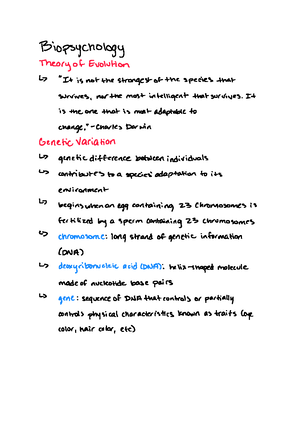 Biopsychology
Theory of Evolution
↳ "It is not the strongest of the species that
survives, nor the most intelligent that survives. It
is the one that is most adaptable to
change," - Charles Darwin
Genetic Variation
↳ genetic difference between individuals
↳ contributes to a species' adaptation to its
environment
↳ begins when an egg containing 23 chromosomes is
fertilized by a sperm containing 23 chromosomes
↳ chromosome: long strand of genetic information
(DNA)
↳ deoxyribonucleic acid (DNA): helix-shaped molecule
made of nucleotide base pairs
↳ gene: sequence of DNA that controls or partially
controls physical characteristics known as traits (eye
color, hair color, etc)